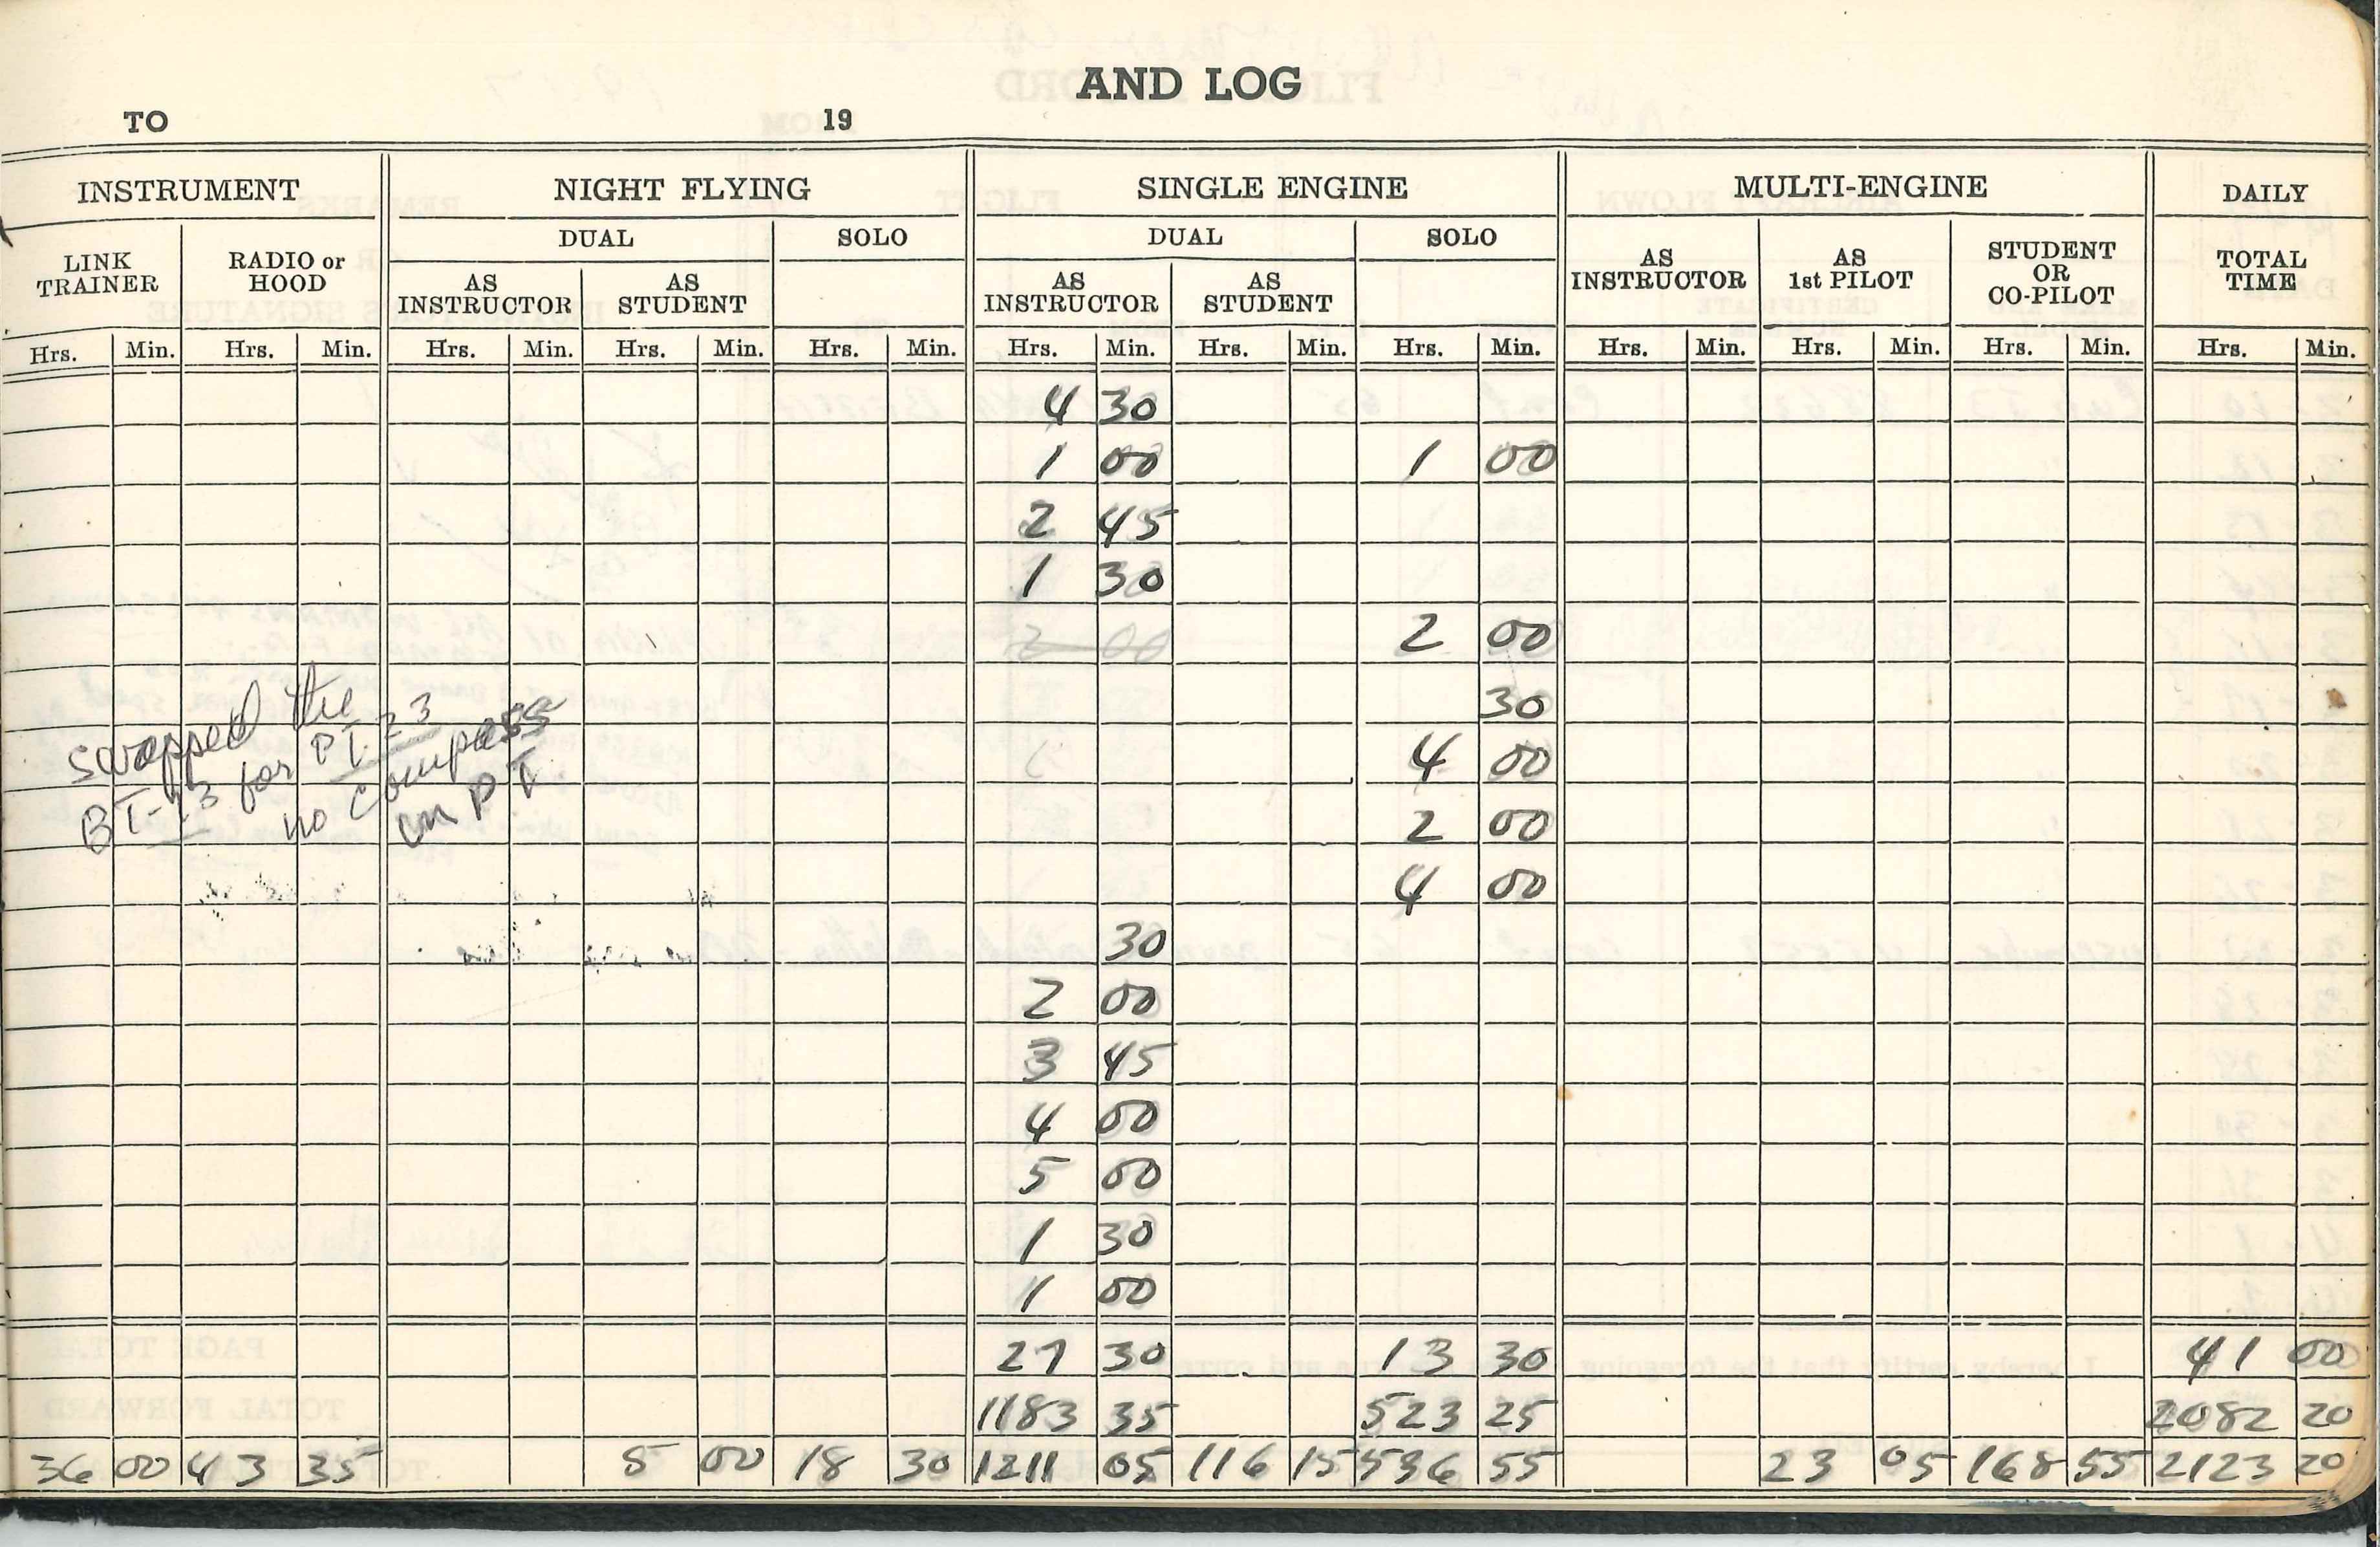 AND LOG
TO 19
INSTRUMENT NIGHT FLYING SINGLE ENGINE MULTI-ENGINE DAILY
DUAL SOLO DUAL SOLO
LINK TRAINER RADIO or HOOD AS INSTRUCTOR AS STUDENT AS INSTRUCTOR AS STUDENT AS INSTRUCTOR AS 1st PILOT STUDENT OR CO-PILOT TOTAL TIME
Hrs. Min. Hrs. Min. Hrs. Min. Hrs. Min. Hrs. Min. Hrs. Min. Hrs. Min. Hrs. Min. Hrs. Min. Hrs. Min. Hrs. Min. Hrs. Min.
4 30
1 00 1 00
2 45
1 30
2 00 2 00
30
swapped the
BT-13 for PT-23
no compass
on PT
4 00
2 00
4 00
30
2 00
3 45
4 00
5 00
1 30
1 00
27 30 13 30 41 00
1183 35 523 25 2082 20
36 00 43 35 8 00 18 30 1211 05 116 15 536 55 23 05 168 55 2123 20